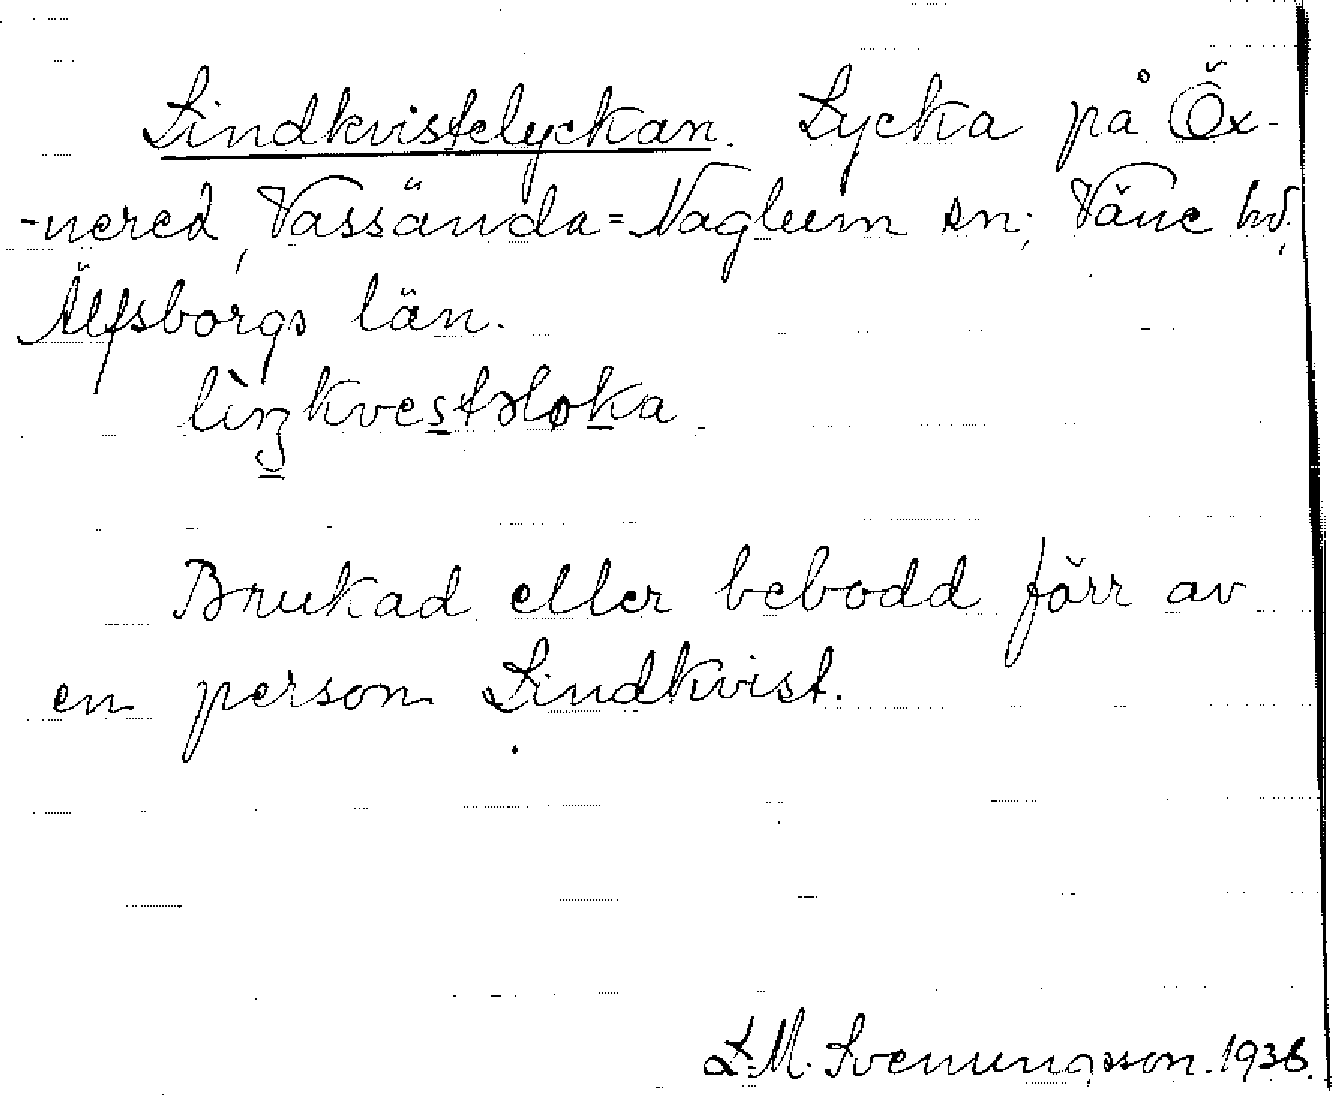 Lindkvistelyckan. Lycka på Öx-
-nered, Vassända=Naglum sn; Väne hd.,
Älfsborgs län.
Brukad eller bebodd förr av
en person Lindkvist.
L.M. Svenungsson. 1936.